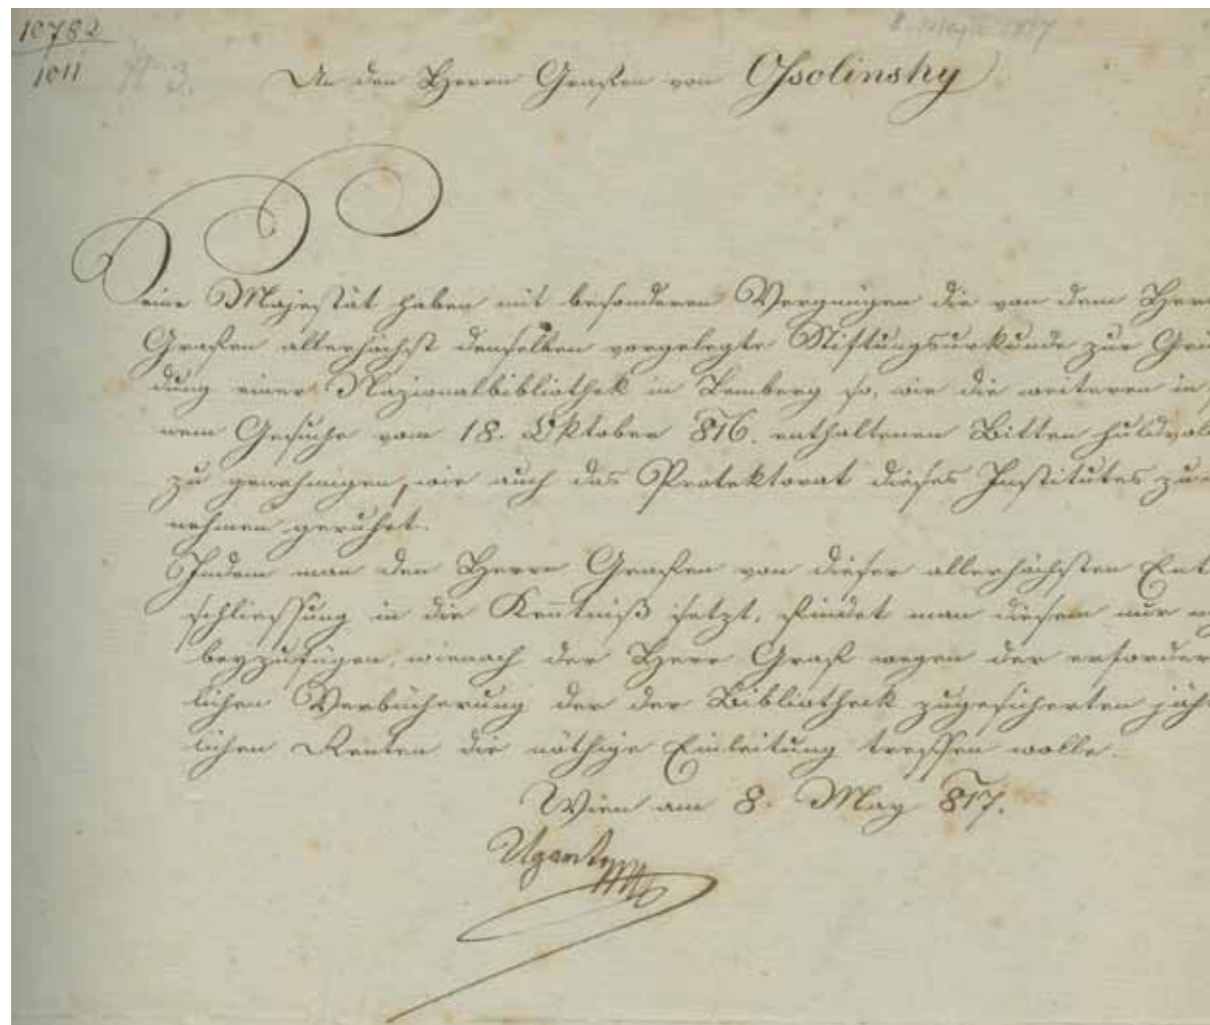 10782
1011
N 3.
8. Maja 1817
An den Herrn Grafen von Ossolinsky
Seine Majestät haben mit besonderen Vergnügen die von dem Her
Grafen allerhöchst denselben vorgelegte Stiftungsurkunde zur Grü
dung einer Nazionalbibliothek in Lemberg so, wie die weiteren in
nem Gesuche vom 18. Oktober 816. enthaltenen Bitten huldvol
zu genehmigen, wie auch das Protektorat dieses Institutes zu
nehmen geruhet.
Indem man den Herrn Grafen von dieser allerhöchsten Ent
schliessung in die Kenntniß setzt, findet man diesem nur
beyzufügen, wienach der Herr Graf wegen der erforder
lichen Verbücherung der der Bibliotheck zugesicherten jähr
lichen Renten die nöthige Einleitung treffen wolle.
Wien am 8. May 817.